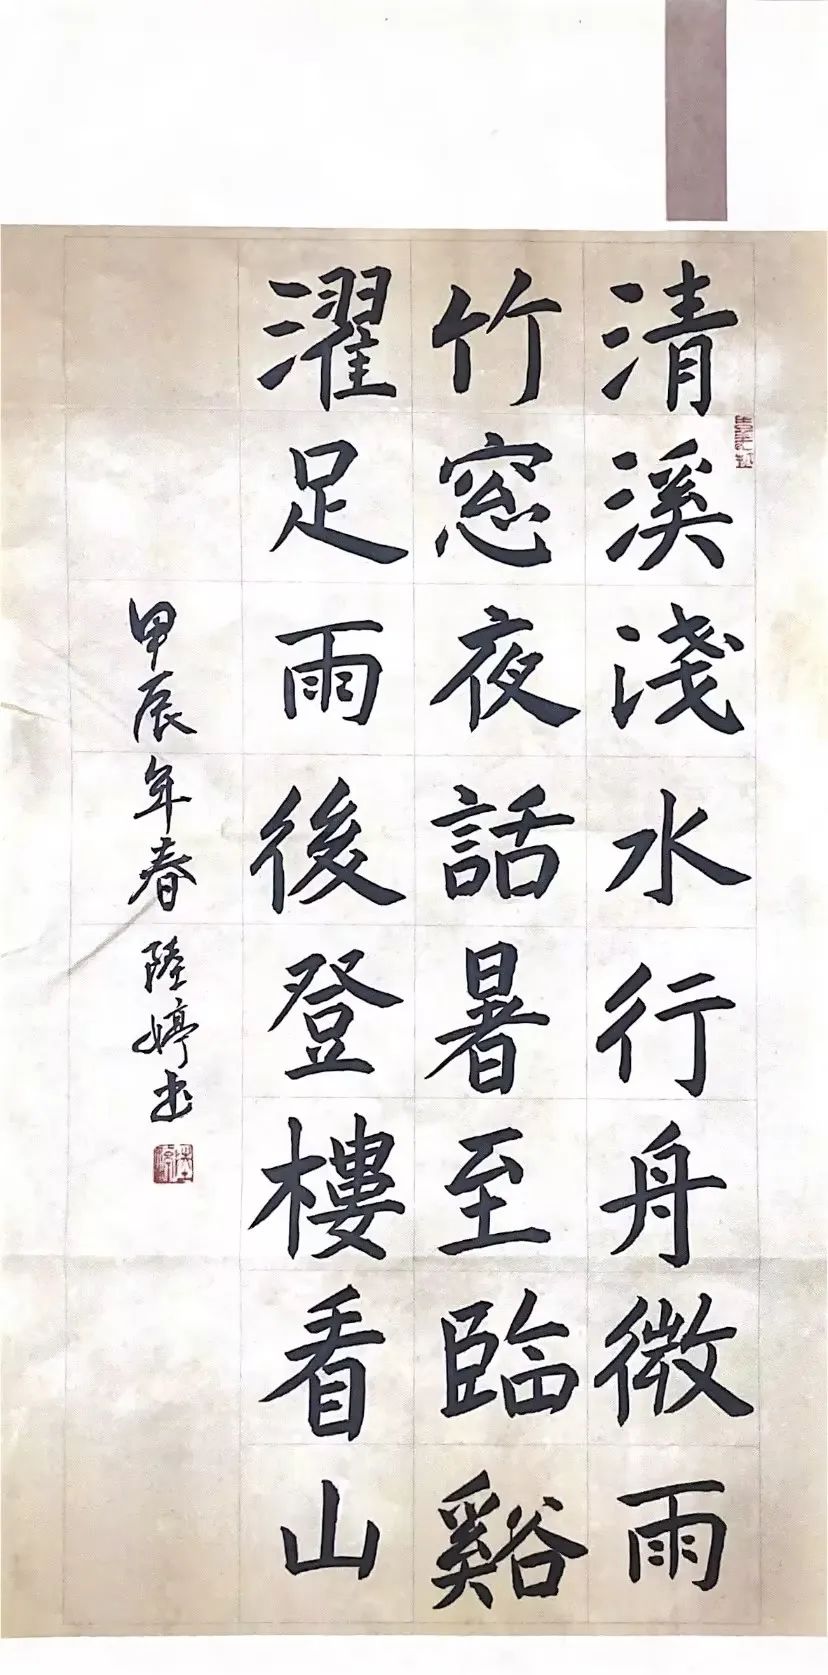 清溪淺水行舟微雨
竹窓夜話暑至臨谿
濯足雨後登樓看山
甲辰年春 陸婷书